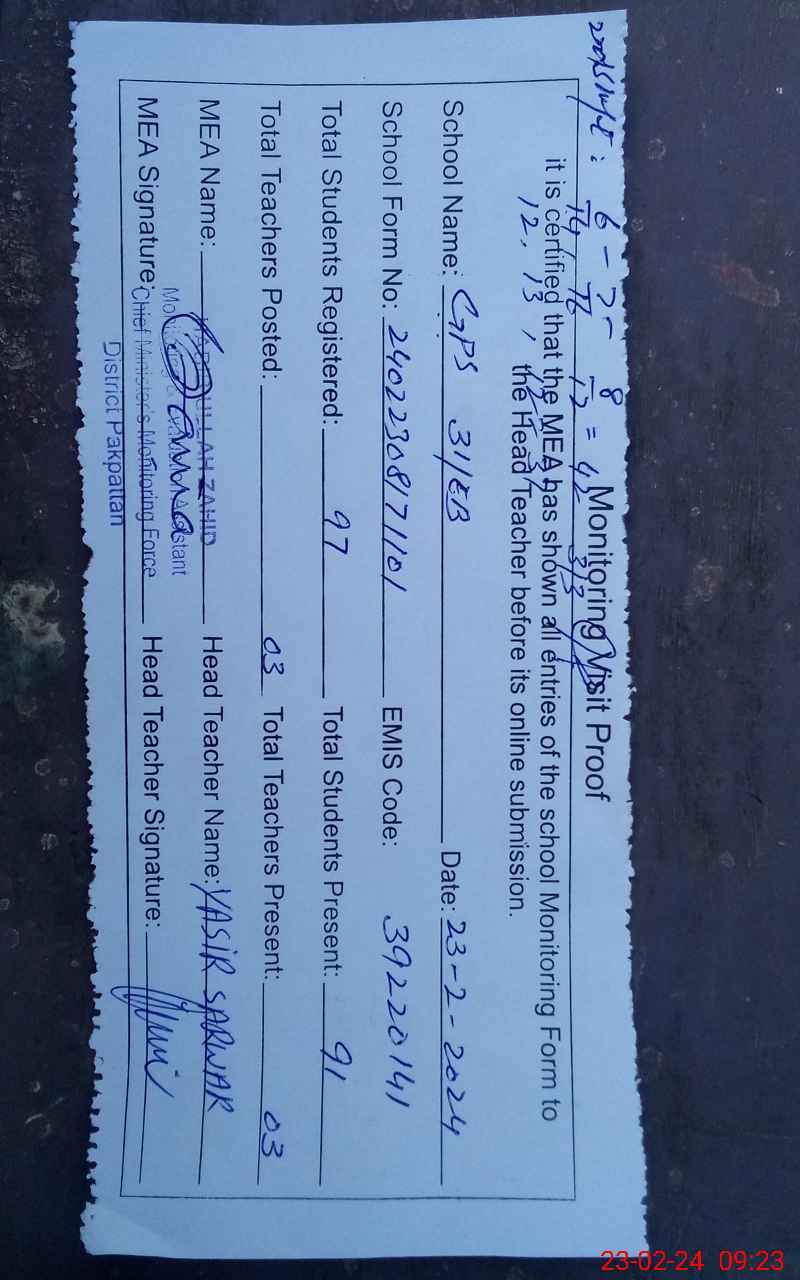 6 - 7 - 8
14 16 12 = 42
12, 13,
Monitoring Visit Proof
it is certified that the MEA has shown all entries of the school Monitoring Form to
the Head Teacher before its online submission.
School Name: GPS 31/EB Date: 23-2-2024
School Form No: 24022308171101 EMIS Code: 39220141
Total Students Registered: 97 Total Students Present: 91
Total Teachers Posted: 03 Total Teachers Present: 03
MEA Name: ULLAH ZAHID Head Teacher Name: YASIR SARWAR
MEA Signature: Head Teacher Signature:
Chief Minister's Monitoring Force
District Pakpattan
23-02-24 09:23